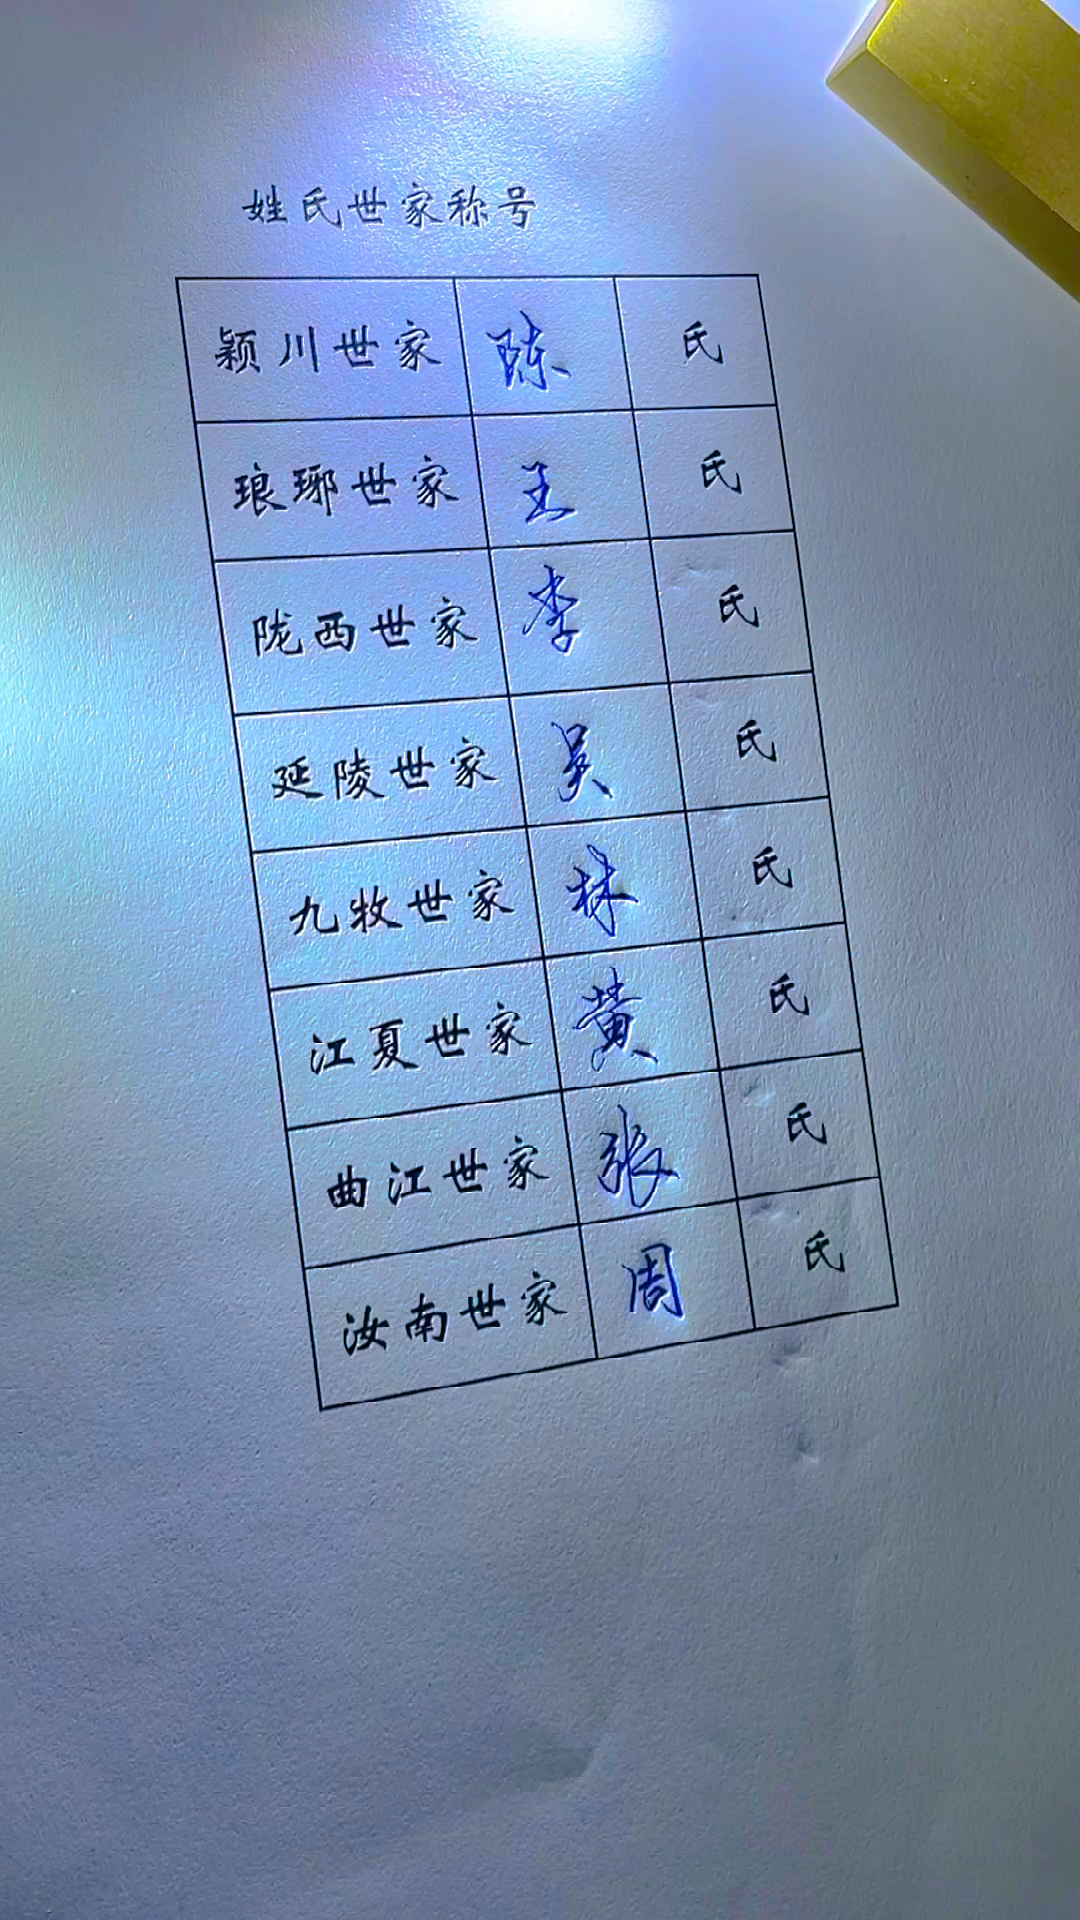 姓氏世家称号
颍川世家 陈 氏
琅琊世家 王 氏
陇西世家 李 氏
延陵世家 吴 氏
九牧世家 林 氏
江夏世家 黄 氏
曲江世家 张 氏
汝南世家 周 氏